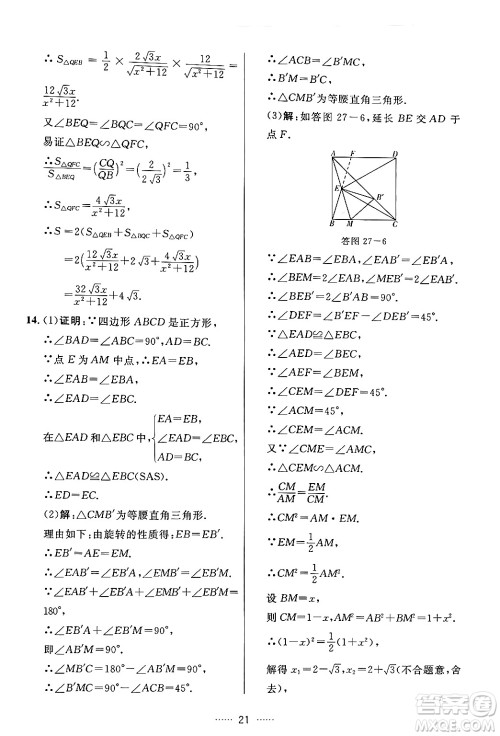 ∴S△QEB=1/2×2√3x/√(x²+12)×12/√(x²+12)=
12√3x/(x²+12).
又∵∠BEQ=∠BQC=∠QFC=90°,
易证△BEQ∽△QFC.
∴S△QFC/S△BEQ=(CQ/QB)²=(x²/√3)²=x²/3.
∴S△QFC=4√3x/(x²+12).
∴S=2(S△QEB+S△BQC+S△QFC)
=2(12√3x/(x²+12)+2√3+4√3x/(x²+12))
=32√3x/(x²+12)+4√3.
14.(1)证明:∵四边形ABCD是正方形,
∴∠BAD=∠ABC=90°,AD=BC.
∵点E为AM中点,∴EA=EB.
∴∠EAB=∠EBA.
∴∠EAD=∠EBC.
在△EAD与△EBC中,{EA=EB, ∠EAD=∠EBC, AD=BC,
∴△EAD≌△EBC(SAS).
∴ED=EC.
(2)解:△CMB′为等腰直角三角形.
理由如下:由旋转的性质得:EB′=EB.
∴EB′=AE=EM.
∴∠EAB′=∠EB′A,∠EMB′=∠EB′M.
∵∠EAB′+∠AB′M+∠EMB′=
180°,
∴∠EB′A+∠EB′M=90°,
即∠AB′M=90°.
∴∠MB′C=180°-∠AB′M=90°.
∵∠ACB=45°,
∴∠B′MC=180°-∠MB′C-
∠ACB=45°.
∴∠ACB=∠B′MC.
∴B′M=B′C.
∴△CMB′为等腰直角三角形.
(3)解:如答图27-6,延长BE交AD于
点F.
A F D
E B′
B M C
答图27-6
∵∠ABE=∠EBA,∠AEF=∠ABE+
∠BAE,
∴∠AEF=2∠EAB.
∵△EAD≌△EBC,
∴∠AED=∠BEC.
∴∠DEF=∠CEM.
∵∠AEF=∠BEM,
∴∠DEF=∠CEM=∠EAB.
∵∠DEF=45°,
∴∠CEM=∠DEF=45°.
∴∠CEM=∠ACM=45°.
又∵∠CME=∠AMC,
∴△CEM∽△ACM.
∴CM/AM=EM/CM.
∴CM²=AM·EM.
∵EM=1/2AM,
∴CM²=1/2AM².
设BM=x,
则CM=1-x,AM²=1+x²,
∴(1-x)²=1/2(1+x²).
解得x₁=2-√3,x₂=2+√3(不合题意,舍
去),
21
答案圈
MXQE.COM